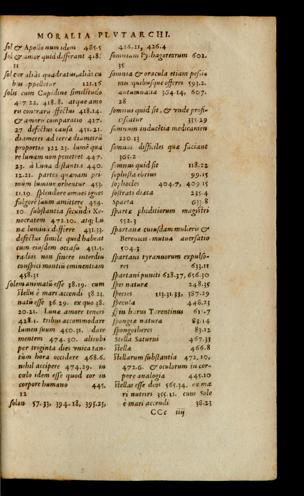 MORALIA PLVTARCHI.
sol & Apollo num idem 485.5
sol & amor quid differant 418.
11
sol cur alias quadratus, alias cubus
appelletur 121.16
solis cum Cupidine similitudo
417.22. 418.8. atque amoris
contraria effectus 418.14.
& amoris comparatio 417.
27. defectus causa 451.21.
diametri ad terræ diametrū
proportio 322.23. lunæ quare
lunam non penetret 447.
23. à Luna distantia 440.
12.21. partes quænam primùm
lumine orbentur 453.
11.19. splendore amoris ignei
fulgorē suum amittere 434.
10. substantia secundū Xenocratem
472.10. atque Lunæ
lumini differre 431.33.
451.5.
conspici montiū eminentiam
458.31
38.19. cum
Stella è mari accendi 38.23.
36.29. ex quo 38.
20.21. Luna amore teneri
428.1. tribus accommodare
lumen suum 450.31. dare
mentem 474.30. altitudo
per triginta dies
tum hora occidere 468.6.
nihil accipere 474.29. in
cælo idem esse quod cor in
corpore humano 445.
12
solon 57.33. 394.18. 395.25,
416.21, 426.4
somnium Pythagoreorum 602.
35
somnia & oracula etiam pessimis
quibusque offerri 593.2.
autumnalia 304.14. 607.
28
somnus quid sit, & unde proficiscatur
331.29
somnum inducētia medicamenta
220.13
somni difficiles quæ faciant
305.2
somnus quid sit 118.22
sophista ebrius 99.15
sophocles 404.7, 409.15
sostrati dicta 235.4
Sparta 633.8
spartæ phiditiorum magistri
552.3
spartanæ cuiusdam mulieris &
Berenices mutua auersatio
504.3
spartani tyrannorum expulsores
633.11
spartani puniti 628.37, 656.30
spei natura 248.35
species 313.31.33, 387.29
specula 448.23
spin harus Tarentinus 631.7
spongiæ natura 83.14
spongotheres 83.12
stella Saturni 467.33
stella 466.8
stellarum substantia 472.10,
472.6. & oculorum in corpore
analogia 445.10
stellas esse deos 565.34. ex mari
nutriri 355.31. cum Sole
è mari accendi 38.23
CCc iiij